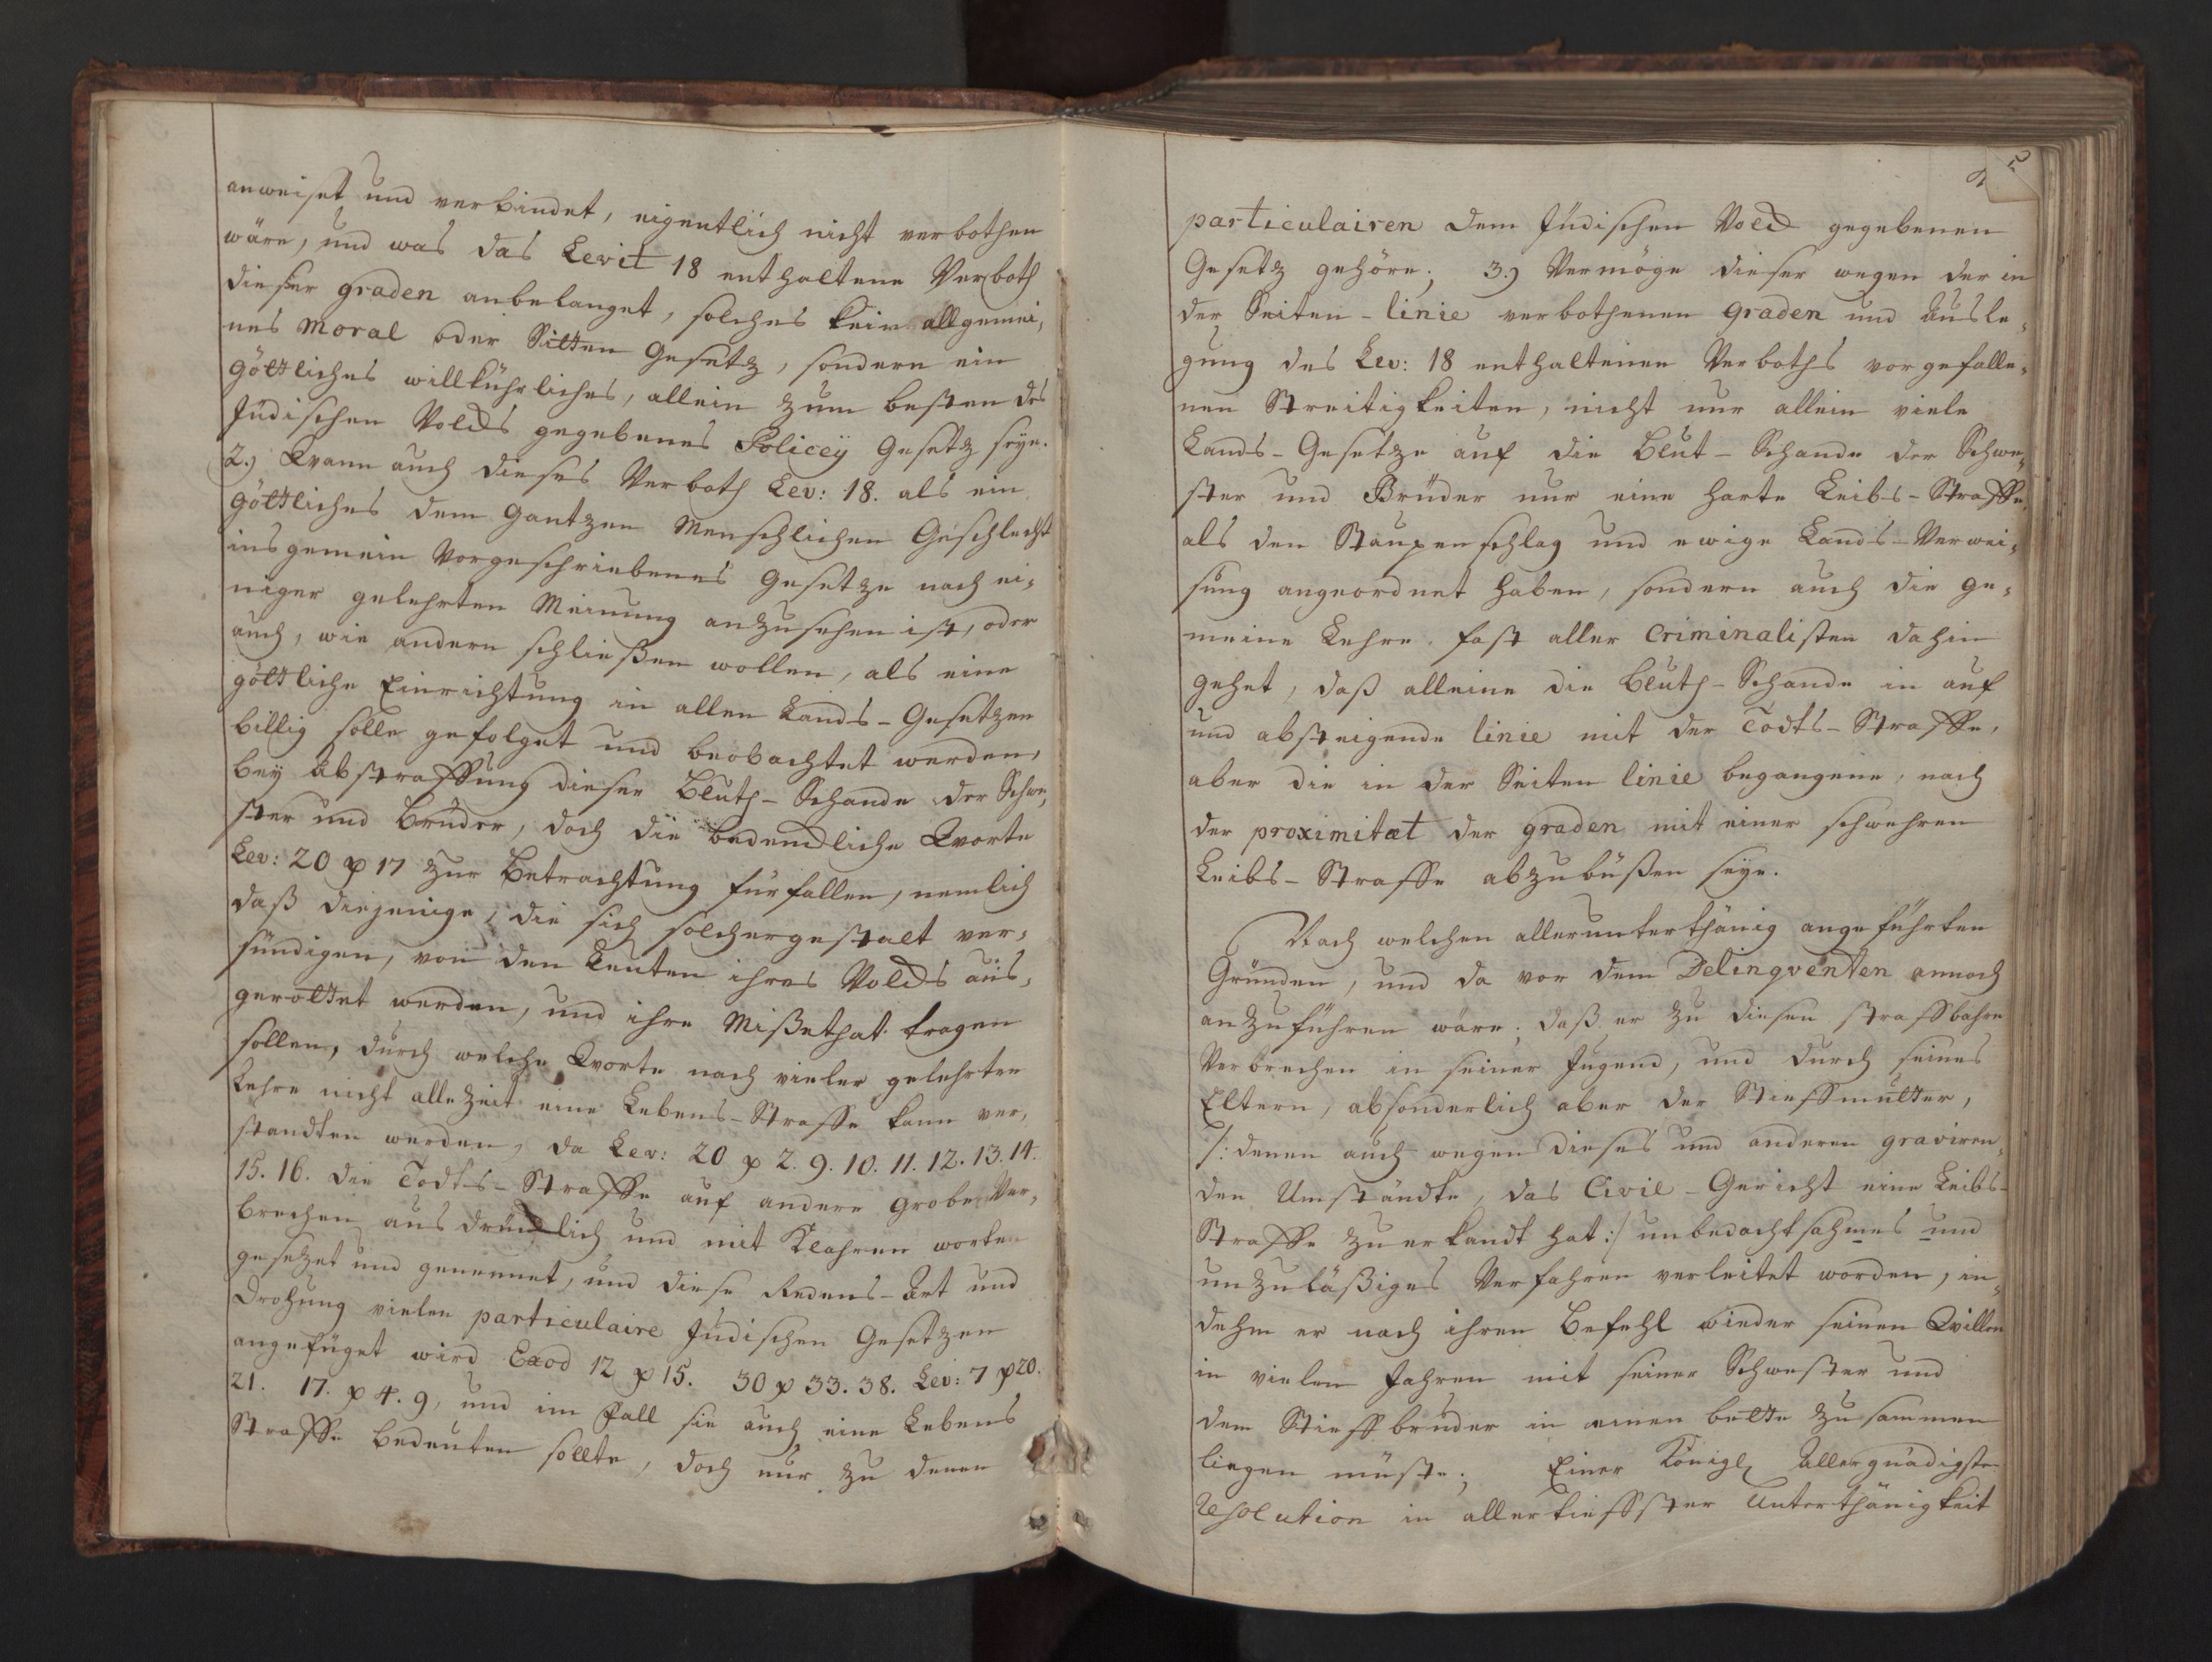 anweiset und verbindet, eigentlich nicht verbothen
wäre, und was das Levit 18 enthaltene Verboth
dieser graden anbelanget, solches kein allgemei,
nes moral oder Sitten Gesetz, sondern ein
göttliches willkührliches, allein zum besten des
Jüdischen Volcks gegebenes Policey Gesetz seye.
2.) Wann auch dieses Verboth Lev: 18. als ein
göttliches dem gantzen Menschlichen Geschlecht
insgemein vorgeschriebenes Gesetze nach ei,
niger gelehrten Meinung anzusehen ist, oder
auch, wie andern schließen wollen, als eine
göttliche Einrichtung in allen Lands-Gesetzen
billig solle gefolget und beobachtet werden,
bey Abstraffung dieser Bluth-Schande der Schwe,
ster und Brüder, doch die bedencliche Worte
Lev: 20 p 17 zur Betrachtung fürfallen, nemlich
daß diejenige, die sich solchergestalt ver,
sündigen, von den Leuten ihres Volcks aus,
gerottet werden, und ihre Mißethat tragen
sollen, durch welche Worte nach vieler gelehrten
Lehre nicht allezeit eine Lebens-Straffe kann ver,
standten werden, da Lev: 20 p 2. 9. 10. 11. 12. 13. 14.
15. 16. die Todts-Straffe auf andere grobe Ver,
brechen ausdrücklich und mit Klahren worten
gesezet und genennet, und diese Redens-Art und
Drohung vielen particulaire Jüdischen Gesetzen
angefüget wird Exod 12 p 15. 30 p 33. 38. Lev: 7 p 20.
21. 17. p 4. 9, und im Fall sie auch eine Lebens
Straffe bedeuten sollte, doch nur zu denen
2
particulairen dem Jüdischen Volck gegebenen
Gesetz gehöre; 3.) Vermöge dieser wegen der in
der Seiten-linie verbothenen graden und Ausle,
gung des Lev: 18 enthaltenen Verboths vorgefalle,
nen Streitigkeiten, nicht nur allein viele
Lands-Gesetze auf die Blut-Schande der Schwe,
ster und Brüder nur eine harte Leibs-Straffe,
als den Staupenschlag und ewige Lands-Verwei,
sung angeordnet haben, sondern auch die ge,
meine Lehre fast aller Criminalisten dahin
gehet, daß alleine die Bluth-Schande in auf
und absteigende linie mit der Todts-Straffe,
aber die in der Seiten linie begangene, nach
der proximitæt der graden mit einer schwehren
Leibs-Straffe abzubüßen seye.
Nach welchen allerunterthänig angeführten
Gründen, und da vor dem Delinqventen annoch
anzuführen wäre; daß er zu diesen straffbahre
Verbrechen in seiner Jugend, und durch seines
Eltern, absonderlich aber der Stieffmutter,
/: denen auch wegen dieses und anderen graviren,
den Umständte, das Civil-Gericht eine Leibs-
Straffe zuerkandt hat :/ unbedachtsahmes und
unzuläßiges Verfahren verleitet worden, in,
dehm er nach ihren Befehl wieder seinen Willen
in vielen Jahren mit seiner Schwester und
dem Stieffbruder in einen bette zusammen
liegen müste; Einer Königl Allergnädigsten
Resolution in allertieffster Unterthänigkeit